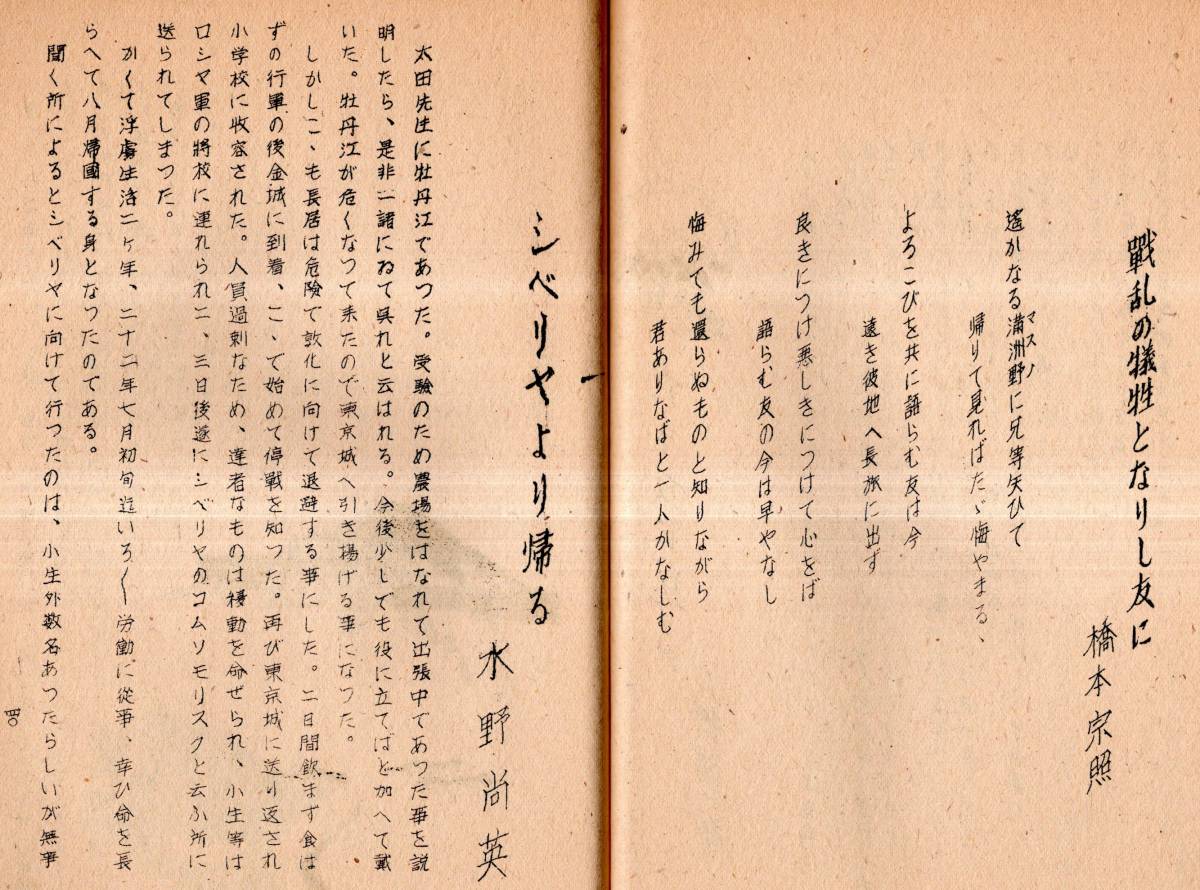 戰乱の犠牲となりし友に
橋本宗照
遙かなる満洲野に兄等矢ひて
マスノ
帰りて見ればたゞ悔やまる、
よろこびを共に語らむ友は今
遠き彼地へ長旅に出ず
良きにつけ悪しきにつけて心をば
語らむ友の今は早やなし
悔みても還らぬものと知りながら
君ありなばと一人かなしむ
シベリヤより帰る
水野尚英
太田先生に牡丹江であつた。受験のため農場をはなれて出張中であつた事を説
明したら、是非一諸にゐて呉れと云はれる。今後少しでも役に立てばと加へて戴
いた。牡丹江が危くなつて来たので東京城へ引き揚げる事になつた。
しかしこゝも長居は危険で敦化に向けて退避する事にした。二日間飲まず食は
ずの行軍の後金城に到着、こゝで始めて停戦を知つた。再び東京城に送り返され
小学校に收容された。人員過剰なため、達者なものは移動を命ぜられ、小生等は
ロシヤ軍の將校に連れられ二、三日後遂にシベリヤのコムソモリスクと云ふ所に
送られてしまつた。
かくて浮虜生活二ヶ年、二十二年七月初旬迄いろ〳〵労働に從事、幸ひ命を長
らへて八月帰國する身となつたのである。
聞く所によるとシベリヤに向けて行つたのは、小生外数名あつたらしいが無事
四〇